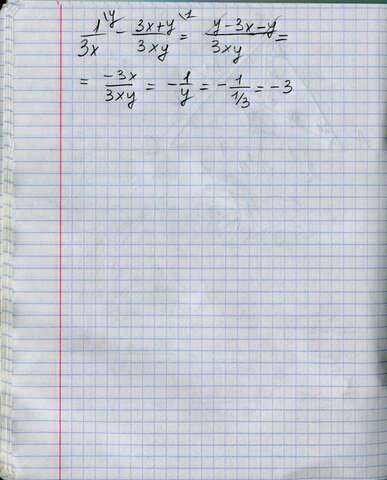 1/3x \y - 3x+y/3xy \1 = y-3x-y/3xy =
= -3x/3xy = -1/y = -1/1/3 = -3